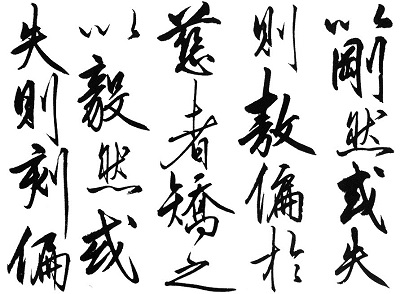 以剛然或失
則敖偏於
慈者矯之
以毅然或
失則刻偏